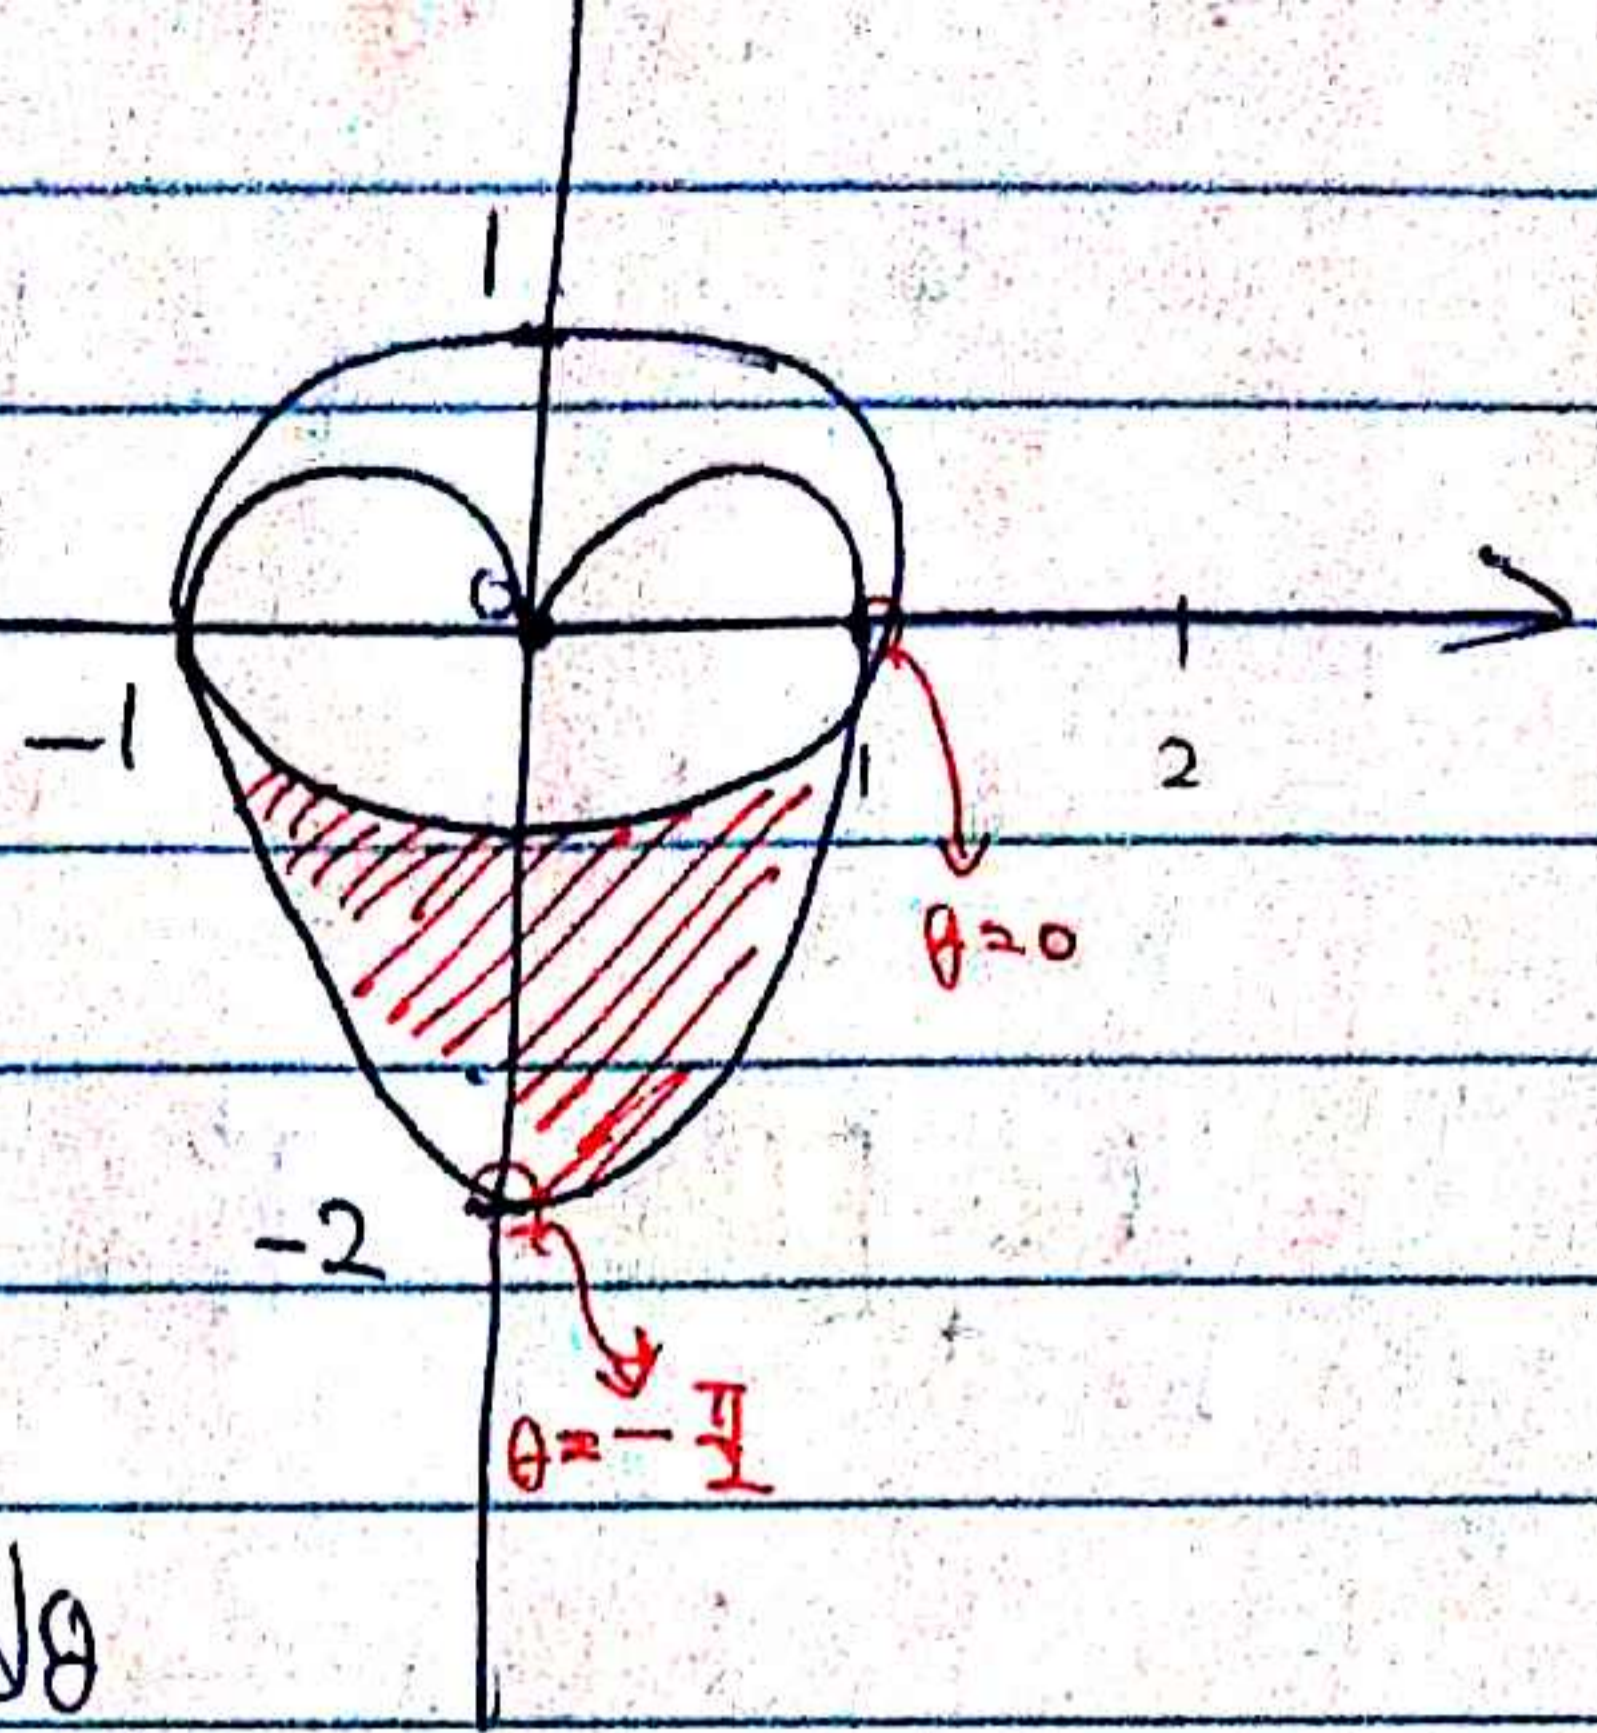 1
0
-1
1
2
θ=0
-2
θ=-π/2